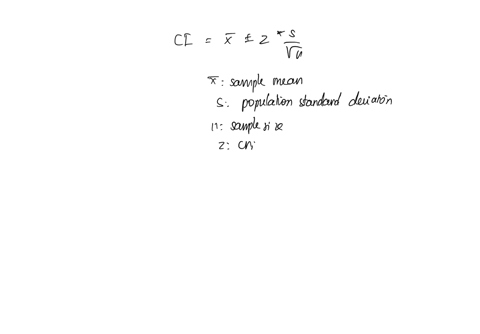 CI = x̄ ± z * s/√n
x̄: sample mean
s: population standard deviation
n: sample size
z: cri